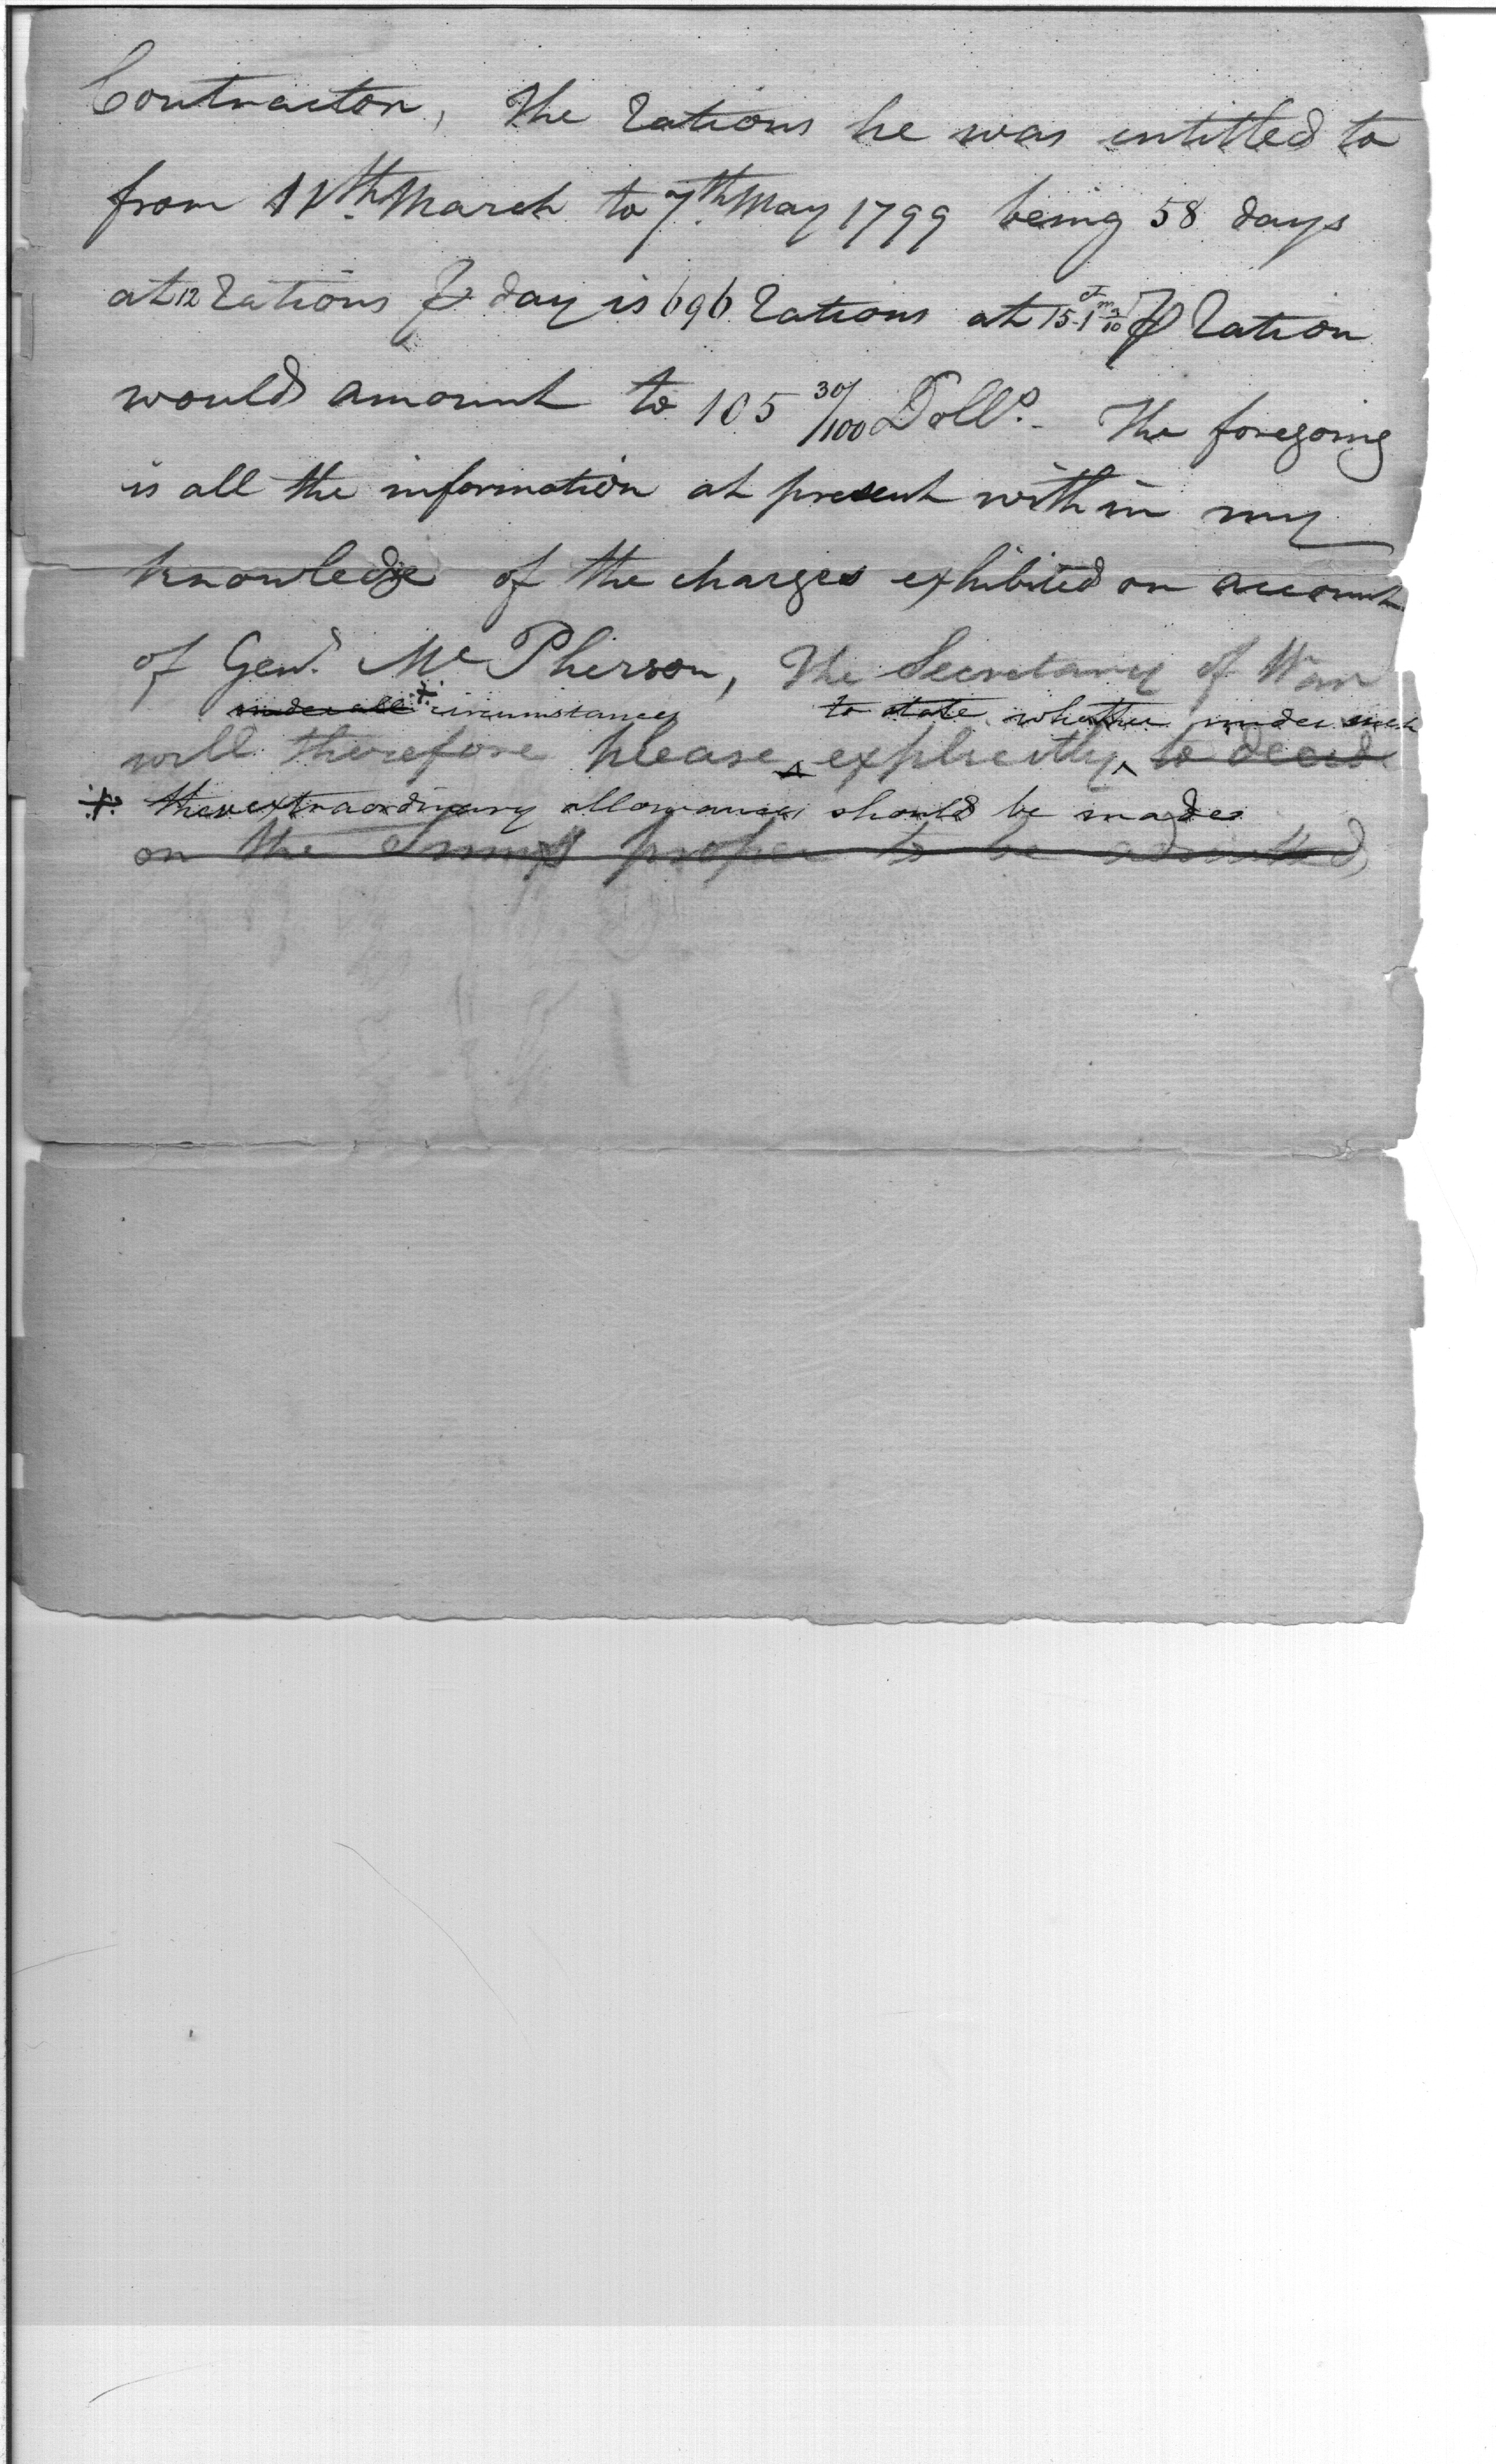 Contractor, The rations he was entitled to
from 11th. March to 7th. May 1799 being 58 days
at 12 rations ⅌ day is 696 rations at 15 cts 1 m 3/10 ⅌ ration
would amount to 105 30/100 Dolls. The foregoing
is all the information at present within my
knowledge of the charges exhibited on account
of Genl. McPherson, The Secretary of War
under all + circumstances to state whether under such
will therefore please ^ explicitly ^ to decide
+ these extraordinary allowances should be made
on the sums proper to be admitted,